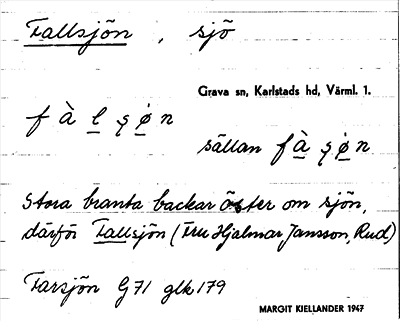 Fallsjön, sjö
Grava sn, Karlstads hd, Värml. 1.
f à l ş ø̇ n
sällan f à ş ø̇ n
Stora branta backar öster om sjön,
därför Fallsjön (Fru Hjalmar Jansson, Rud)
Farsjön G 71 glk 179
MARGIT KIELLANDER 1947